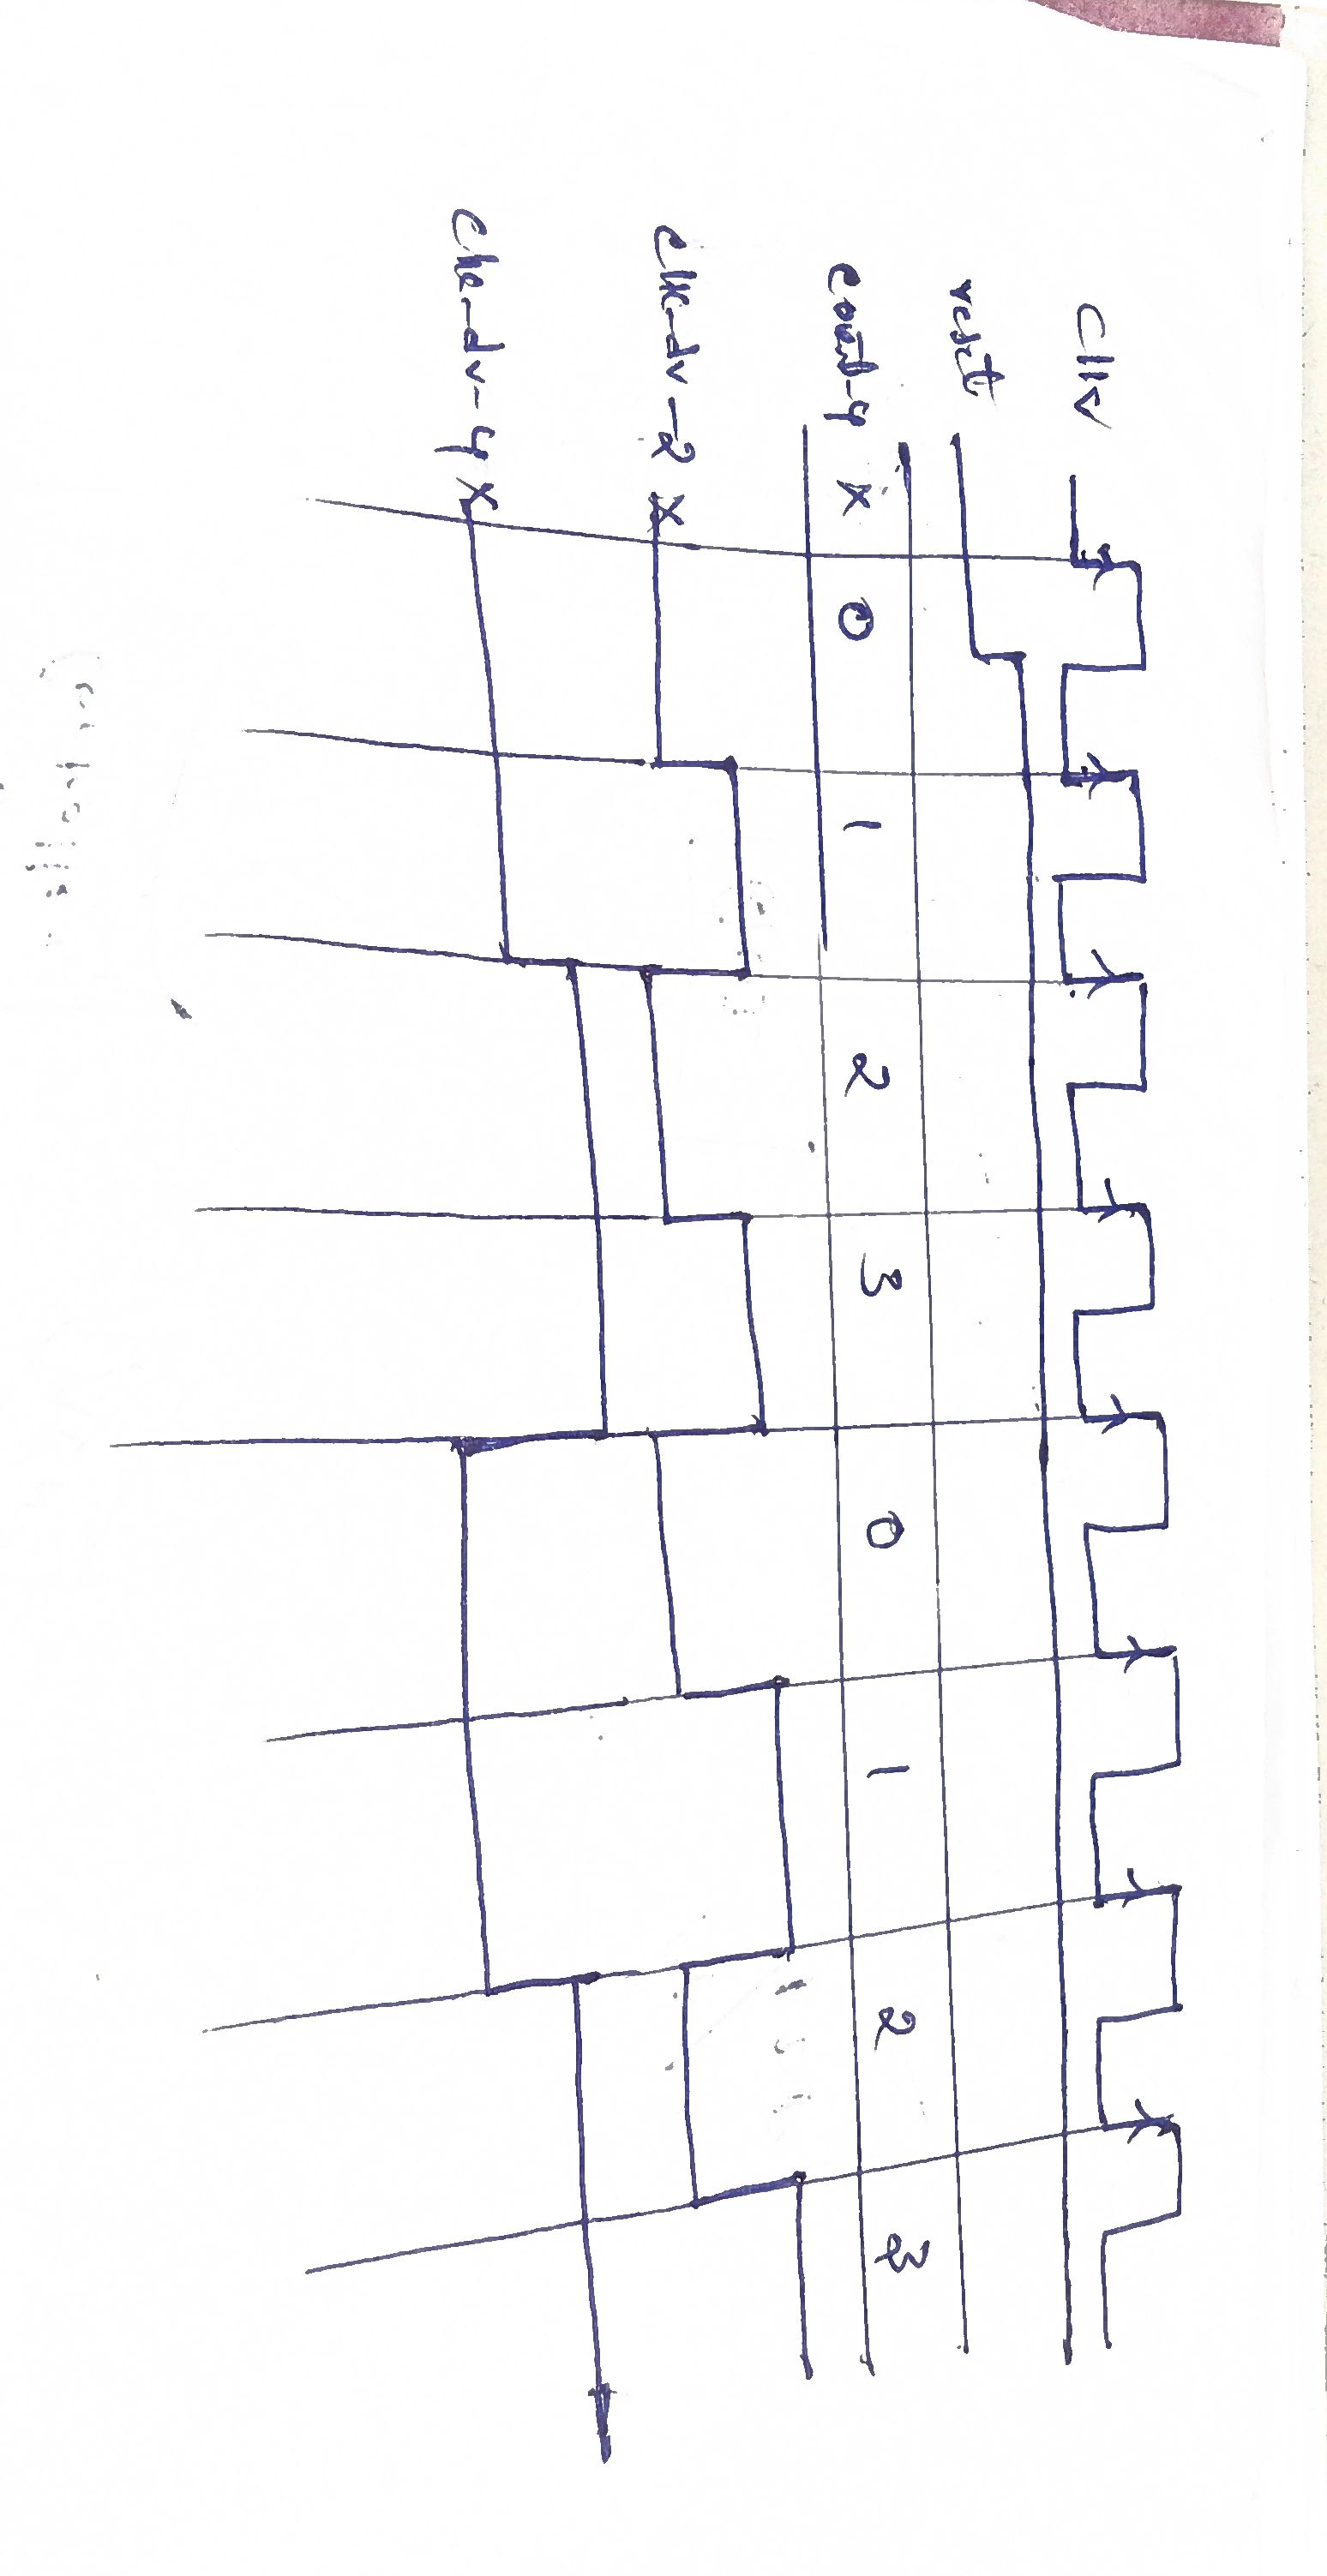 Clk
reset
count-4 X 0 1 2 3 0 1 2 3
Clk-dv-2 X
Clk-dv-4 X